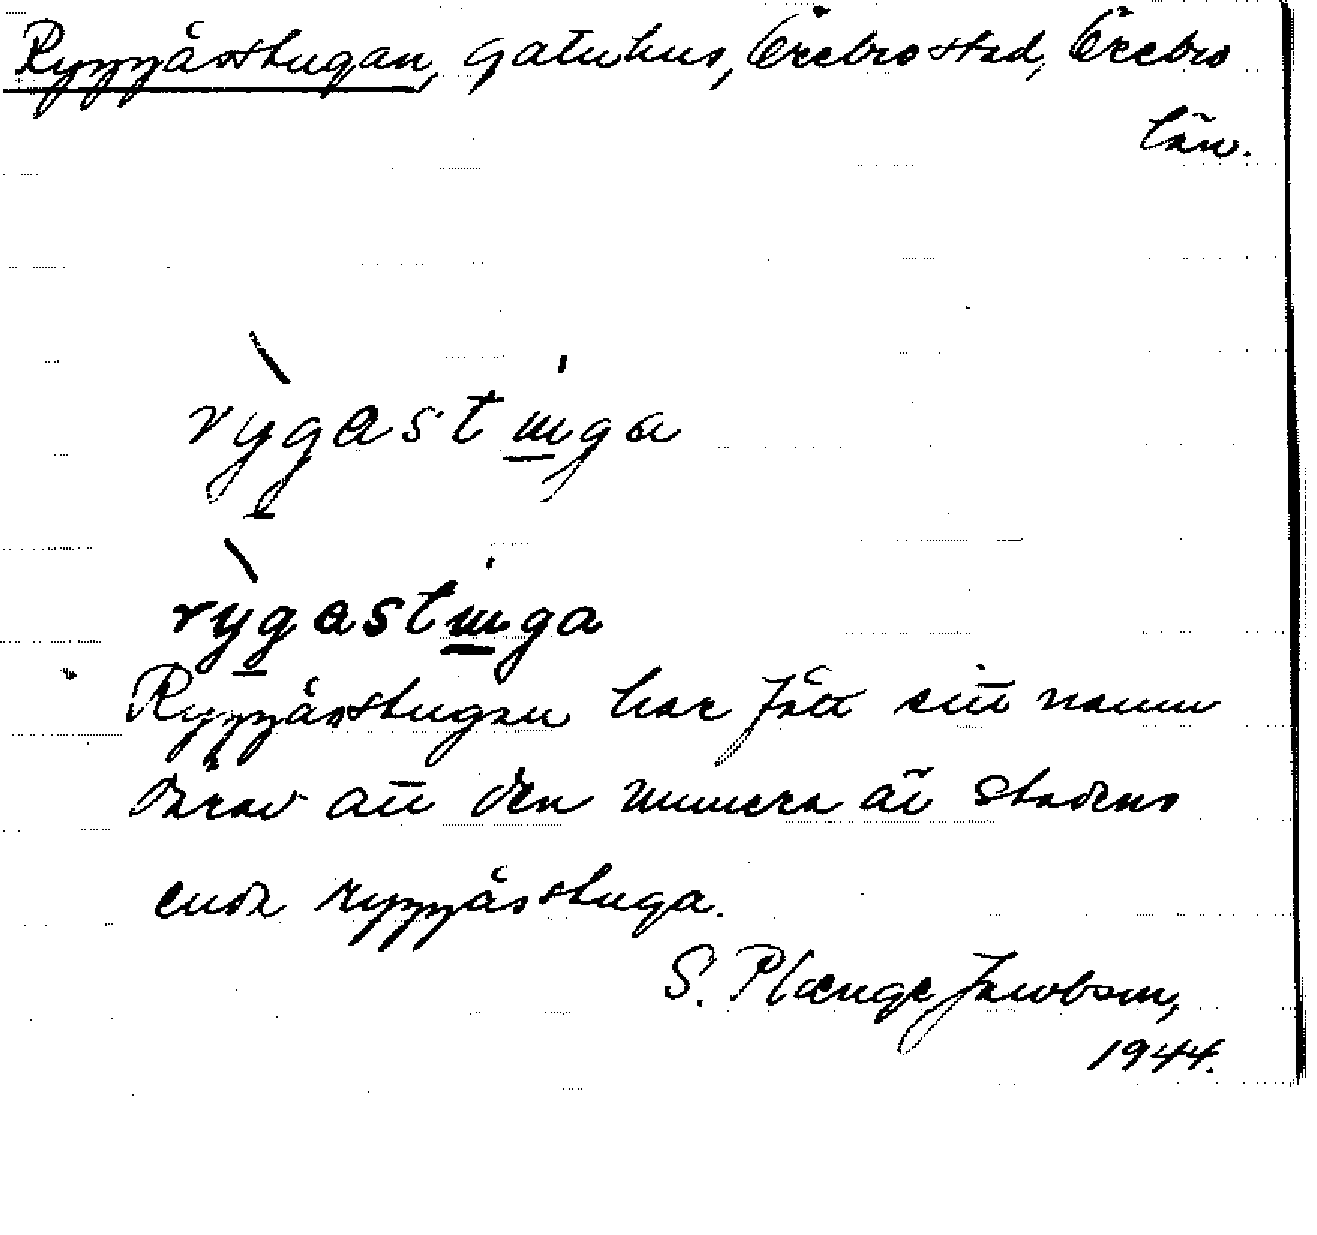 Ryggåsstugan, gatuhus, Örebro stad, Örebro
län.
rygastuga
rygastuga
Ryggåsstugan har fått sitt namn
därav att den numera är stadens
enda ryggåsstuga.
S. Plænge Jacobson,
1944.